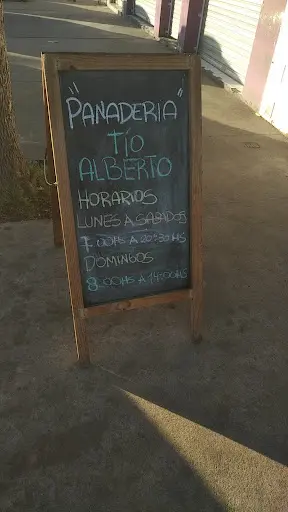 "PANADERIA"
TÍO
ALBERTO
HORARIOS
LUNES A SABADOS
7:00HS A 20:30HS
DOMINGOS
8:00HS A 14:00HS